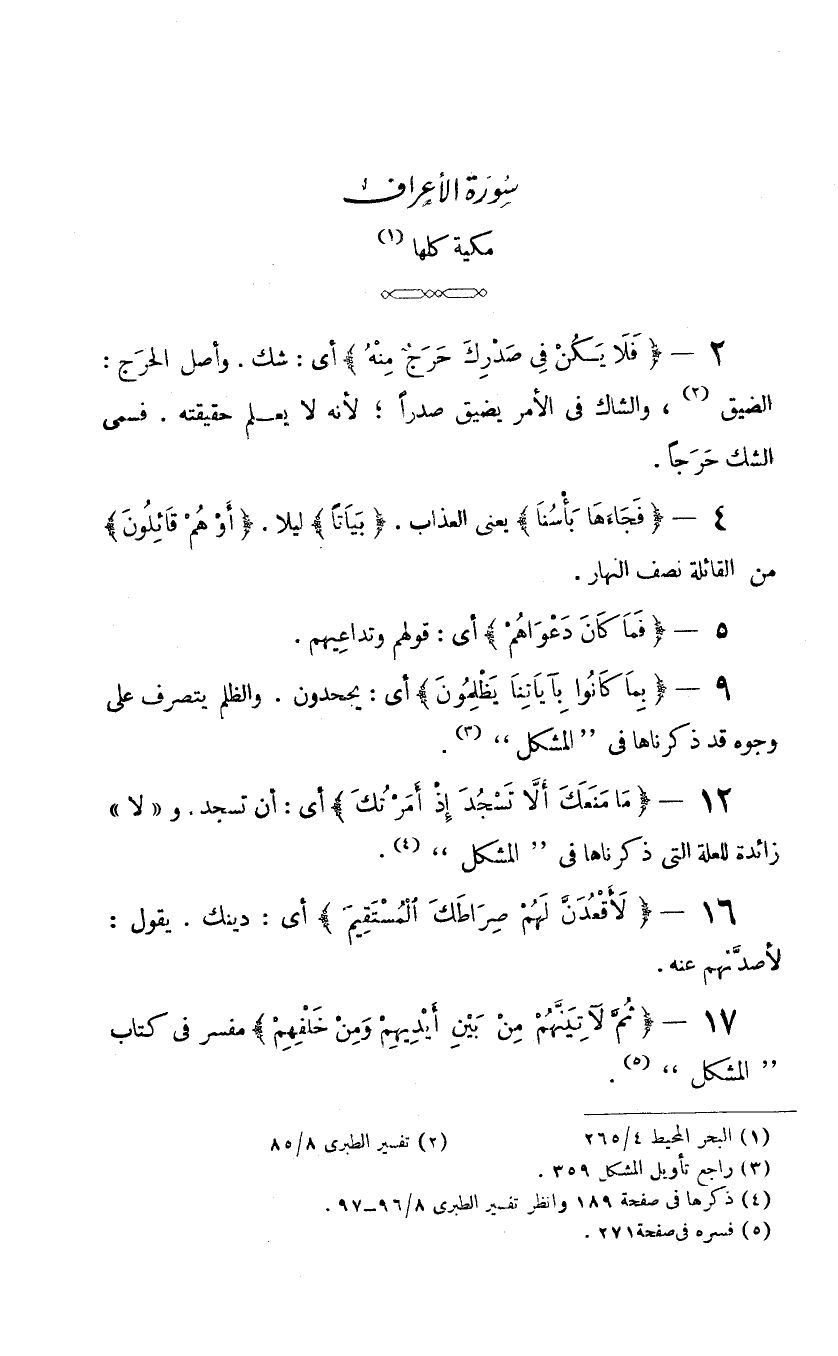 سُورَة الأعراف
مكية كلها (١)
٢ — ﴿ فَلَا يَكُنْ فِي صَدْرِكَ حَرَجٌ مِنْهُ ﴾ أى : شك . وأصل الحرَج :
الضيق (٢) ، والشاك فى الأمر يضيق صدراً ؛ لأنه لا يعلم حقيقته . فسمى
الشك حَرَجاً .
٤ — ﴿ فَجَاءَهَا بَأْسُنَا ﴾ يعنى العذاب . ﴿ بَيَاتاً ﴾ ليلا . ﴿ أَوْ هُمْ قَائِلُونَ ﴾
من القائلة نصف النهار .
٥ — ﴿ فَمَا كَانَ دَعْوَاهُمْ ﴾ أى : قولهم وتداعِيهم .
٩ — ﴿ بِمَا كَانُوا بِآيَاتِنَا يَظْلِمُونَ ﴾ أى : يجحدون . والظلم يتصرف على
وجوه قد ذكرناها فى ”المشكل“ (٣) .
١٢ — ﴿ مَا مَنَعَكَ أَلَّا تَسْجُدَ إِذْ أَمَرْتُكَ ﴾ أى : أن تسجد . و « لا »
زائدة للعلة التى ذكرناها فى ” المشكل “ (٤) .
١٦ — ﴿ لَأَقْعُدَنَّ لَهُمْ صِرَاطَكَ ٱلْمُسْتَقِيمَ ﴾ أى : دينك . يقول :
لأصدَّنهم عنه .
١٧ — ﴿ ثُمَّ لَآتِيَنَّهُمْ مِنْ بَيْنِ أَيْدِيهِمْ وَمِنْ خَلْفِهِمْ ﴾ مفسر فى كتاب
” المشكل “ (٥) .
(١) البحر المحيط ٢٦٥/٤ (٢) تفسير الطبرى ٨٥/٨
(٣) راجع تأويل المشكل ٣٥٩ .
(٤) ذكرها فى صفحة ١٨٩ وانظر تفسير الطبرى ٩٦/٨–٩٧ .
(٥) فسره فى صفحة ٢٧١ .